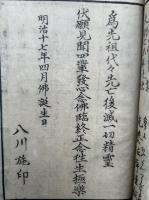 爲先祖代々先亡後滅一切精靈
伏願見聞四輩發心念佛臨終正念往生極樂
明治十七年四月佛誕生日
八川施印